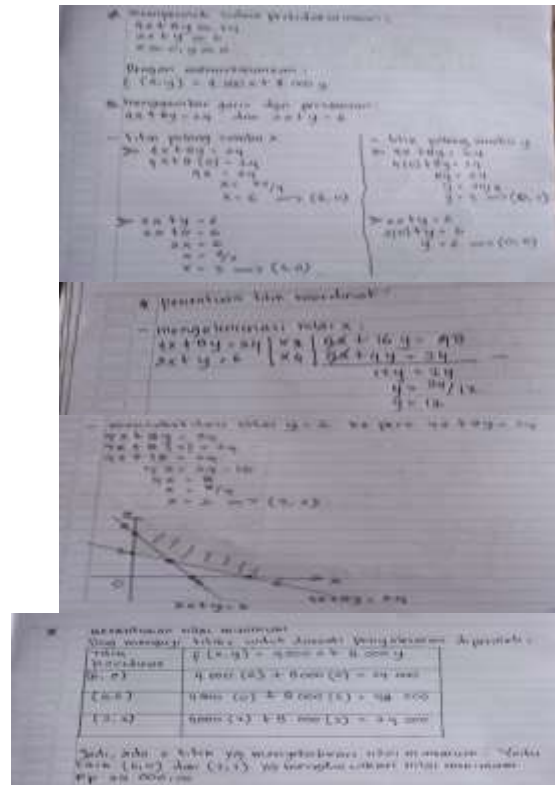 * menyusun sistem pertidaksamaan :
4x + 8y ≥ 24
2x + y ≥ 6
x ≥ 0, y ≥ 0
Dengan meminimumkan :
f (x, y) = 4.000 x + 8.000 y
menggambar garis dgn persamaan :
4x + 8y = 24 dan 2x + y = 6
- titik potong sumbu x
> 4x + 8y = 24
4x + 8 (0) = 24
4x = 24
x = 24/4
x = 6 (6, 0)
> 2x + y = 6
2x + 0 = 6
2x = 6
x = 6/2
x = 3 (3, 0)
- titik potong sumbu y
> 4x + 8y = 24
4(0) + 8y = 24
8y = 24
y = 24/8
y = 3
> 2x + y = 6
2(0) + y = 6
y = 6
* penentuan titik koordinat :
- mengeliminasi nilai x :
4x + 8y = 24 | x2 | 8x + 16y = 48
2x + y = 6 | x4 | 8x + 4y = 24 -
12y = 24
y = 24/12
- nilai y = 2 ke pers 4x + 8y = 24
4x + 8y = 24
4x + 16 = 24
4x = 24 - 16
4x = 8
x = 8/4
x = 2 (2, 2)
0 6 x
2x + y = 6 4x + 8y = 24
* penentuan nilai minimum
Dgn menguji titik, untuk daerah penyelesaian diperoleh :
Titik f (x, y) = 4.000 x + 8.000 y
(6, 0) 4.000 (6) + 8.000 (0) = 24.000
(0, 6) 4.000 (0) + 8.000 (6) = 48.000
(2, 2) 4.000 (2) + 8.000 (2) = 24.000
Jadi, ada 2 titik yg menyebabkan nilai minimum. Yaitu
titik (6,0) dan (2,2) yg menghasilkan nilai minimum